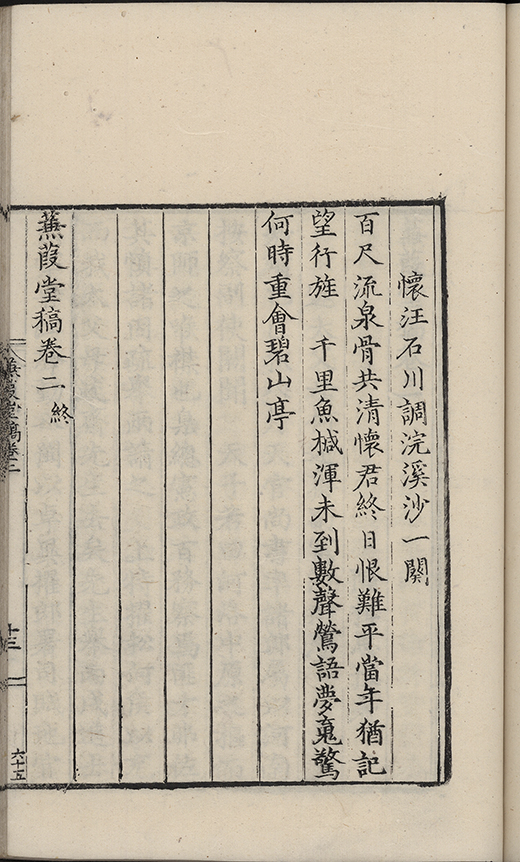 懷汪石川調浣溪沙一闋
百尺流泉骨共清懷君終日恨難平當年猶記
望行旌　千里魚椷渾未到數聲鶯語夢䰟驚
何時重會碧山亭
蕪葭堂稿卷二終
蕪葭堂稿卷二
十三
六十五